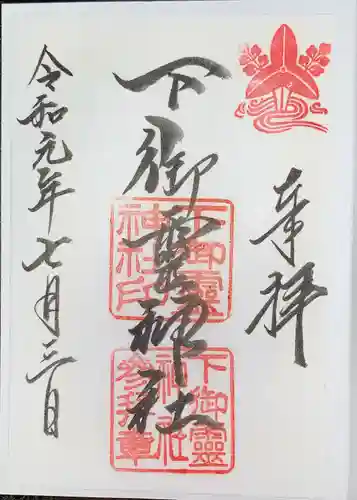 奉拝
下御霊神社
下御靈
神社印
下御靈
神社
参拜章
令和元年七月三日